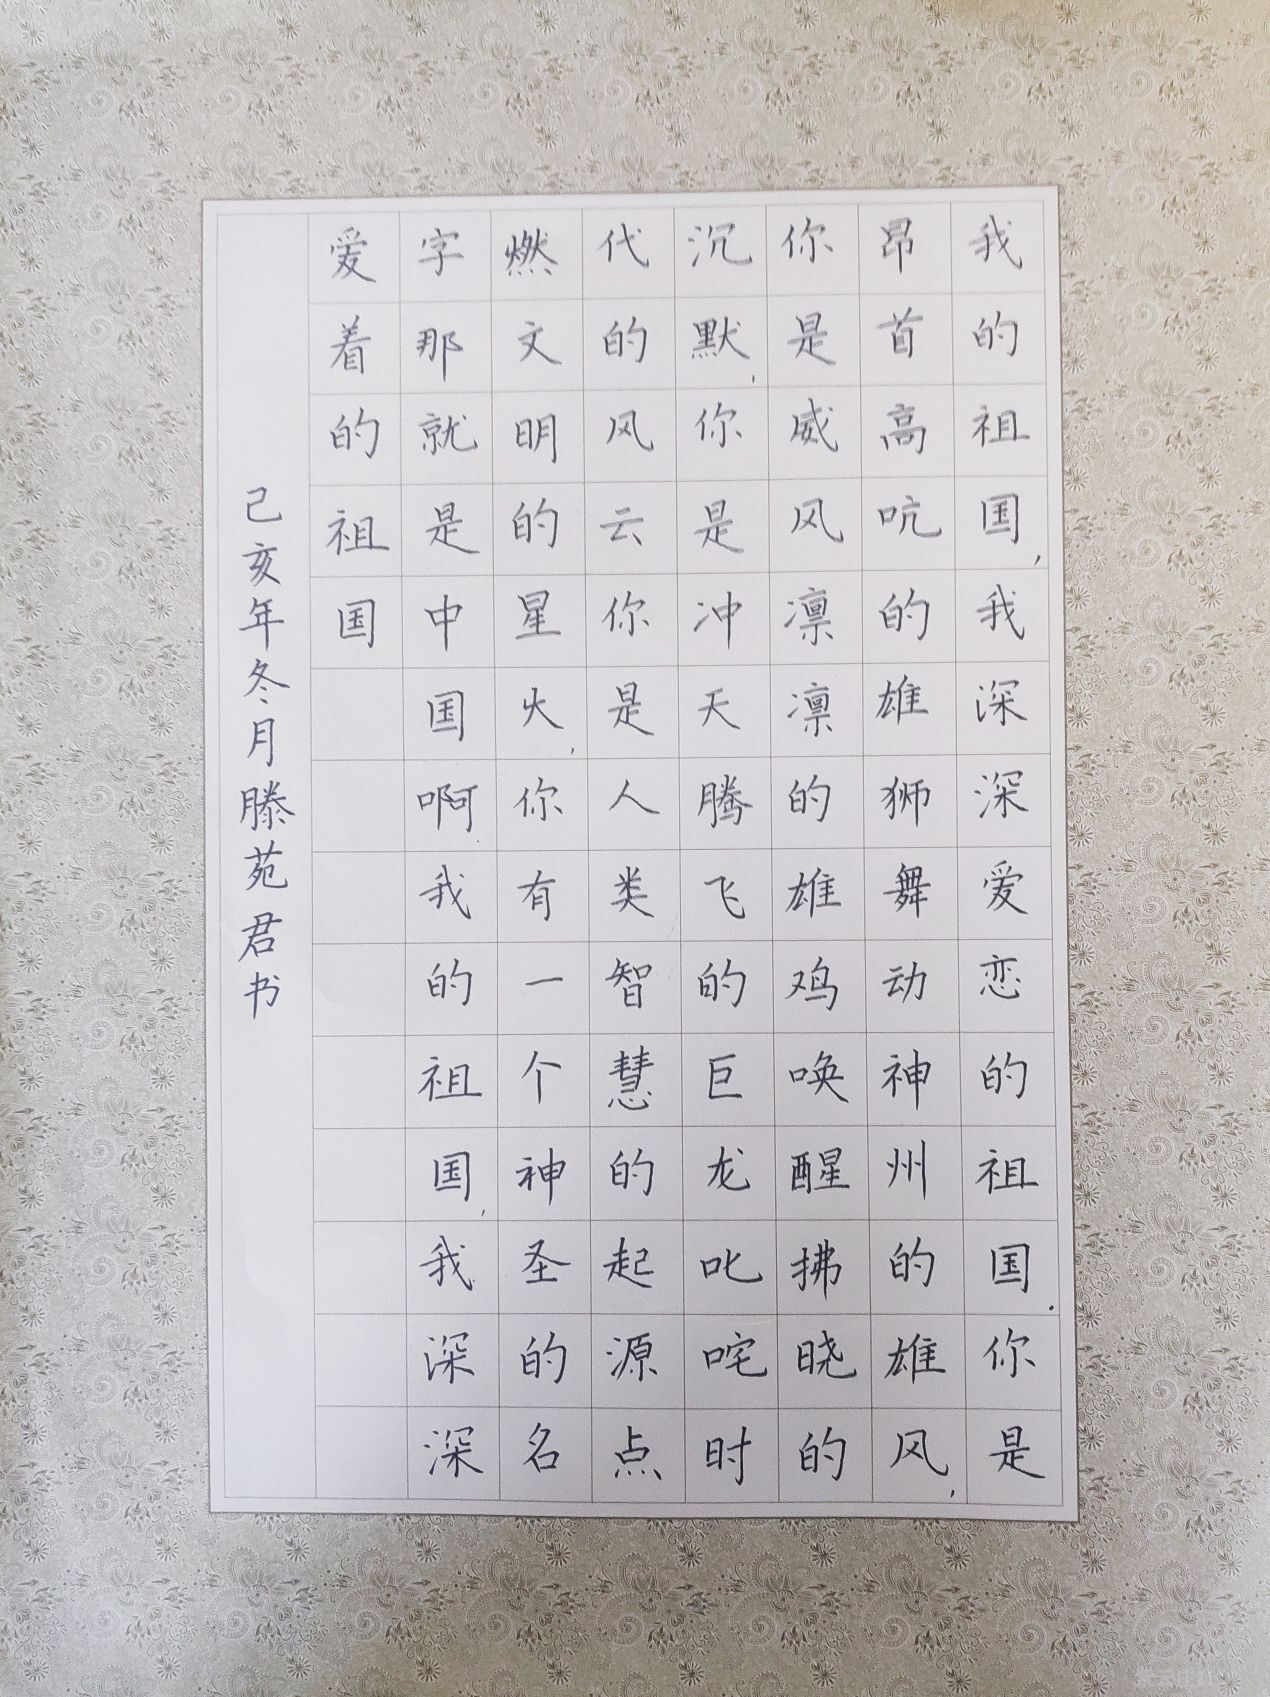 我的祖国,我深深爱恋的祖国.你是
昂首高吭的雄狮舞动神州的雄风,
你是威风凛凛的雄鸡唤醒拂晓的
沉默,你是冲天腾飞的巨龙叱咤时
代的风云你是人类智慧的起源点
燃文明的星火,你有一个神圣的名
字那就是中国啊.我的祖国,我深深
爱着的祖国
己亥年冬月滕苑君书